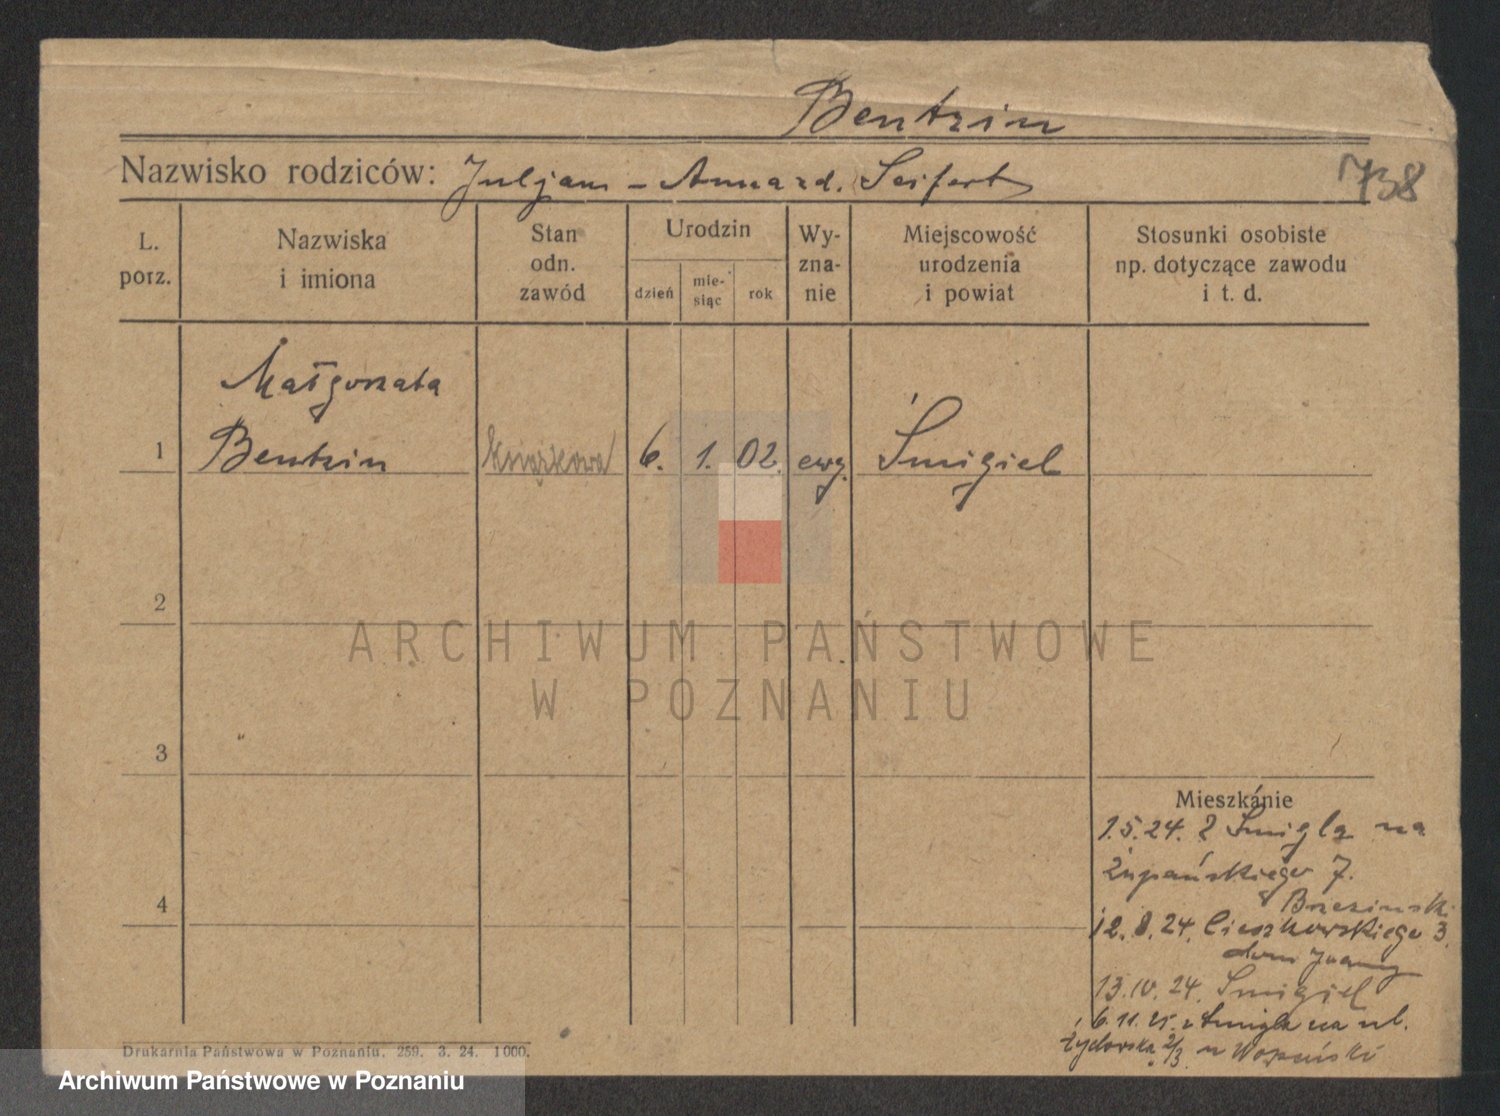 Bentzin
Nazwisko rodziców: Juljan - Anna zd. Seifert
738
L. porz.
Nazwiska i imiona
Stan odn. zawód
Urodzin
dzień
mie-siąc
rok
Wy-zna-nie
Miejscowość urodzenia i powiat
Stosunki osobiste np. dotyczące zawodu i t. d.
Małgorzata
1 Bentzin książkowa 6. 1. 02. ewg. Śmigiel
2
ARCHIWUM PAŃSTWOWE
W POZNANIU
3
Mieszkanie
1.5.24. z Śmigla na
Żupańskiego 7.
4
Brzezinski
12.8.24. Cieszkowskiego 3.
dom
13.IV.24. Śmigiel
6.11.25. z Śmigla na ul.
Żydowska 2/3. u
Drukarnia Państwowa w Poznaniu. 259. 3. 24. 1000.
Archiwum Państwowe w Poznaniu